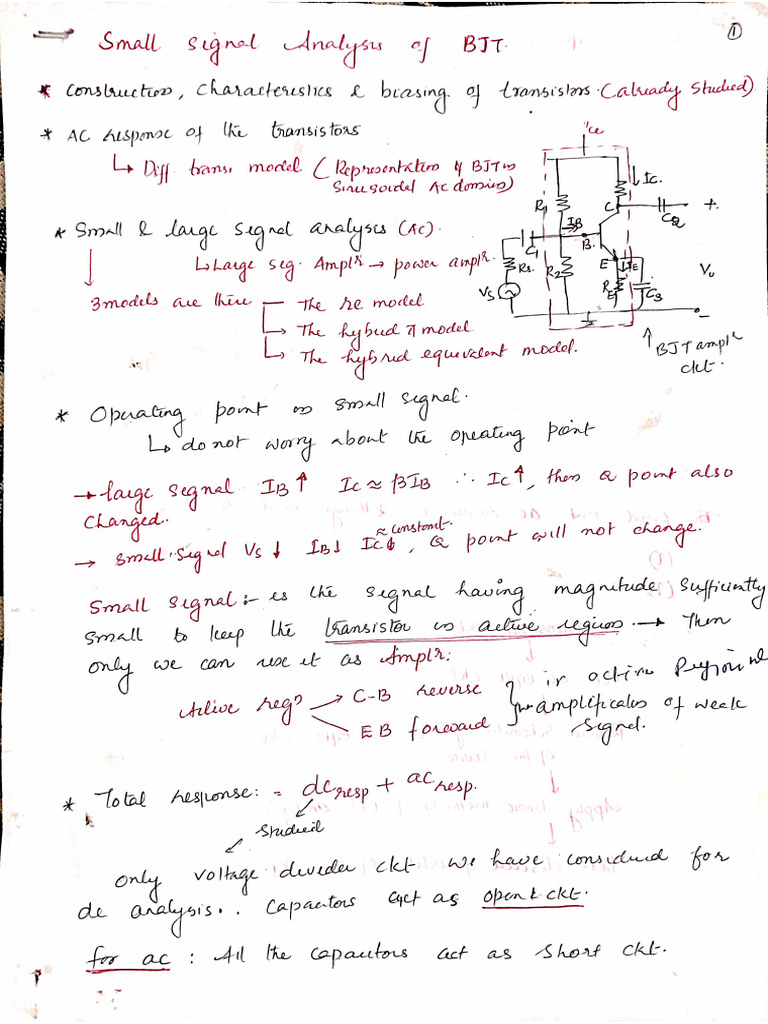 Small signal Analysis of BJT. ①
* Construction, characteristics & biasing of transistors. (already studied)
* AC response of the transistors
↳ Diff trans. model (Representation of BJT in sinusoidal AC domain)
Vcc
R1
IB
IC.
C
C2
+
C1
B.
Rs
R2
E
IE
Vs
RE
C3
Vo
-
BJT amplr ckt.
* Small & large signal analysis (AC).
↳ Large sig. Amplr → power amplr.
3 models are there — The re model
→ The hybrid π model
↳ The hybrid equivalent model.
* Operating point in small signal.
↳ do not worry about the operating point
→ large signal IB ↑ IC ≈ βIB ∴ IC ↑, then Q point also
changed.
≈ constant
→ small signal Vs ↓ IB↓ IC↓, Q point will not change.
Small signal :- is the signal having magnitude sufficiently
small to keep the transistor in active region → Then
only we can use it as Amplr:
Active regn → C-B reverse
E B forward
in active region
amplification of weak
signal.
* Total response: = dc resp + ac resp.
studied
only voltage divider ckt we have considered for
dc analysis. Capacitors act as open ckt.
for ac : All the capacitors act as short ckt.